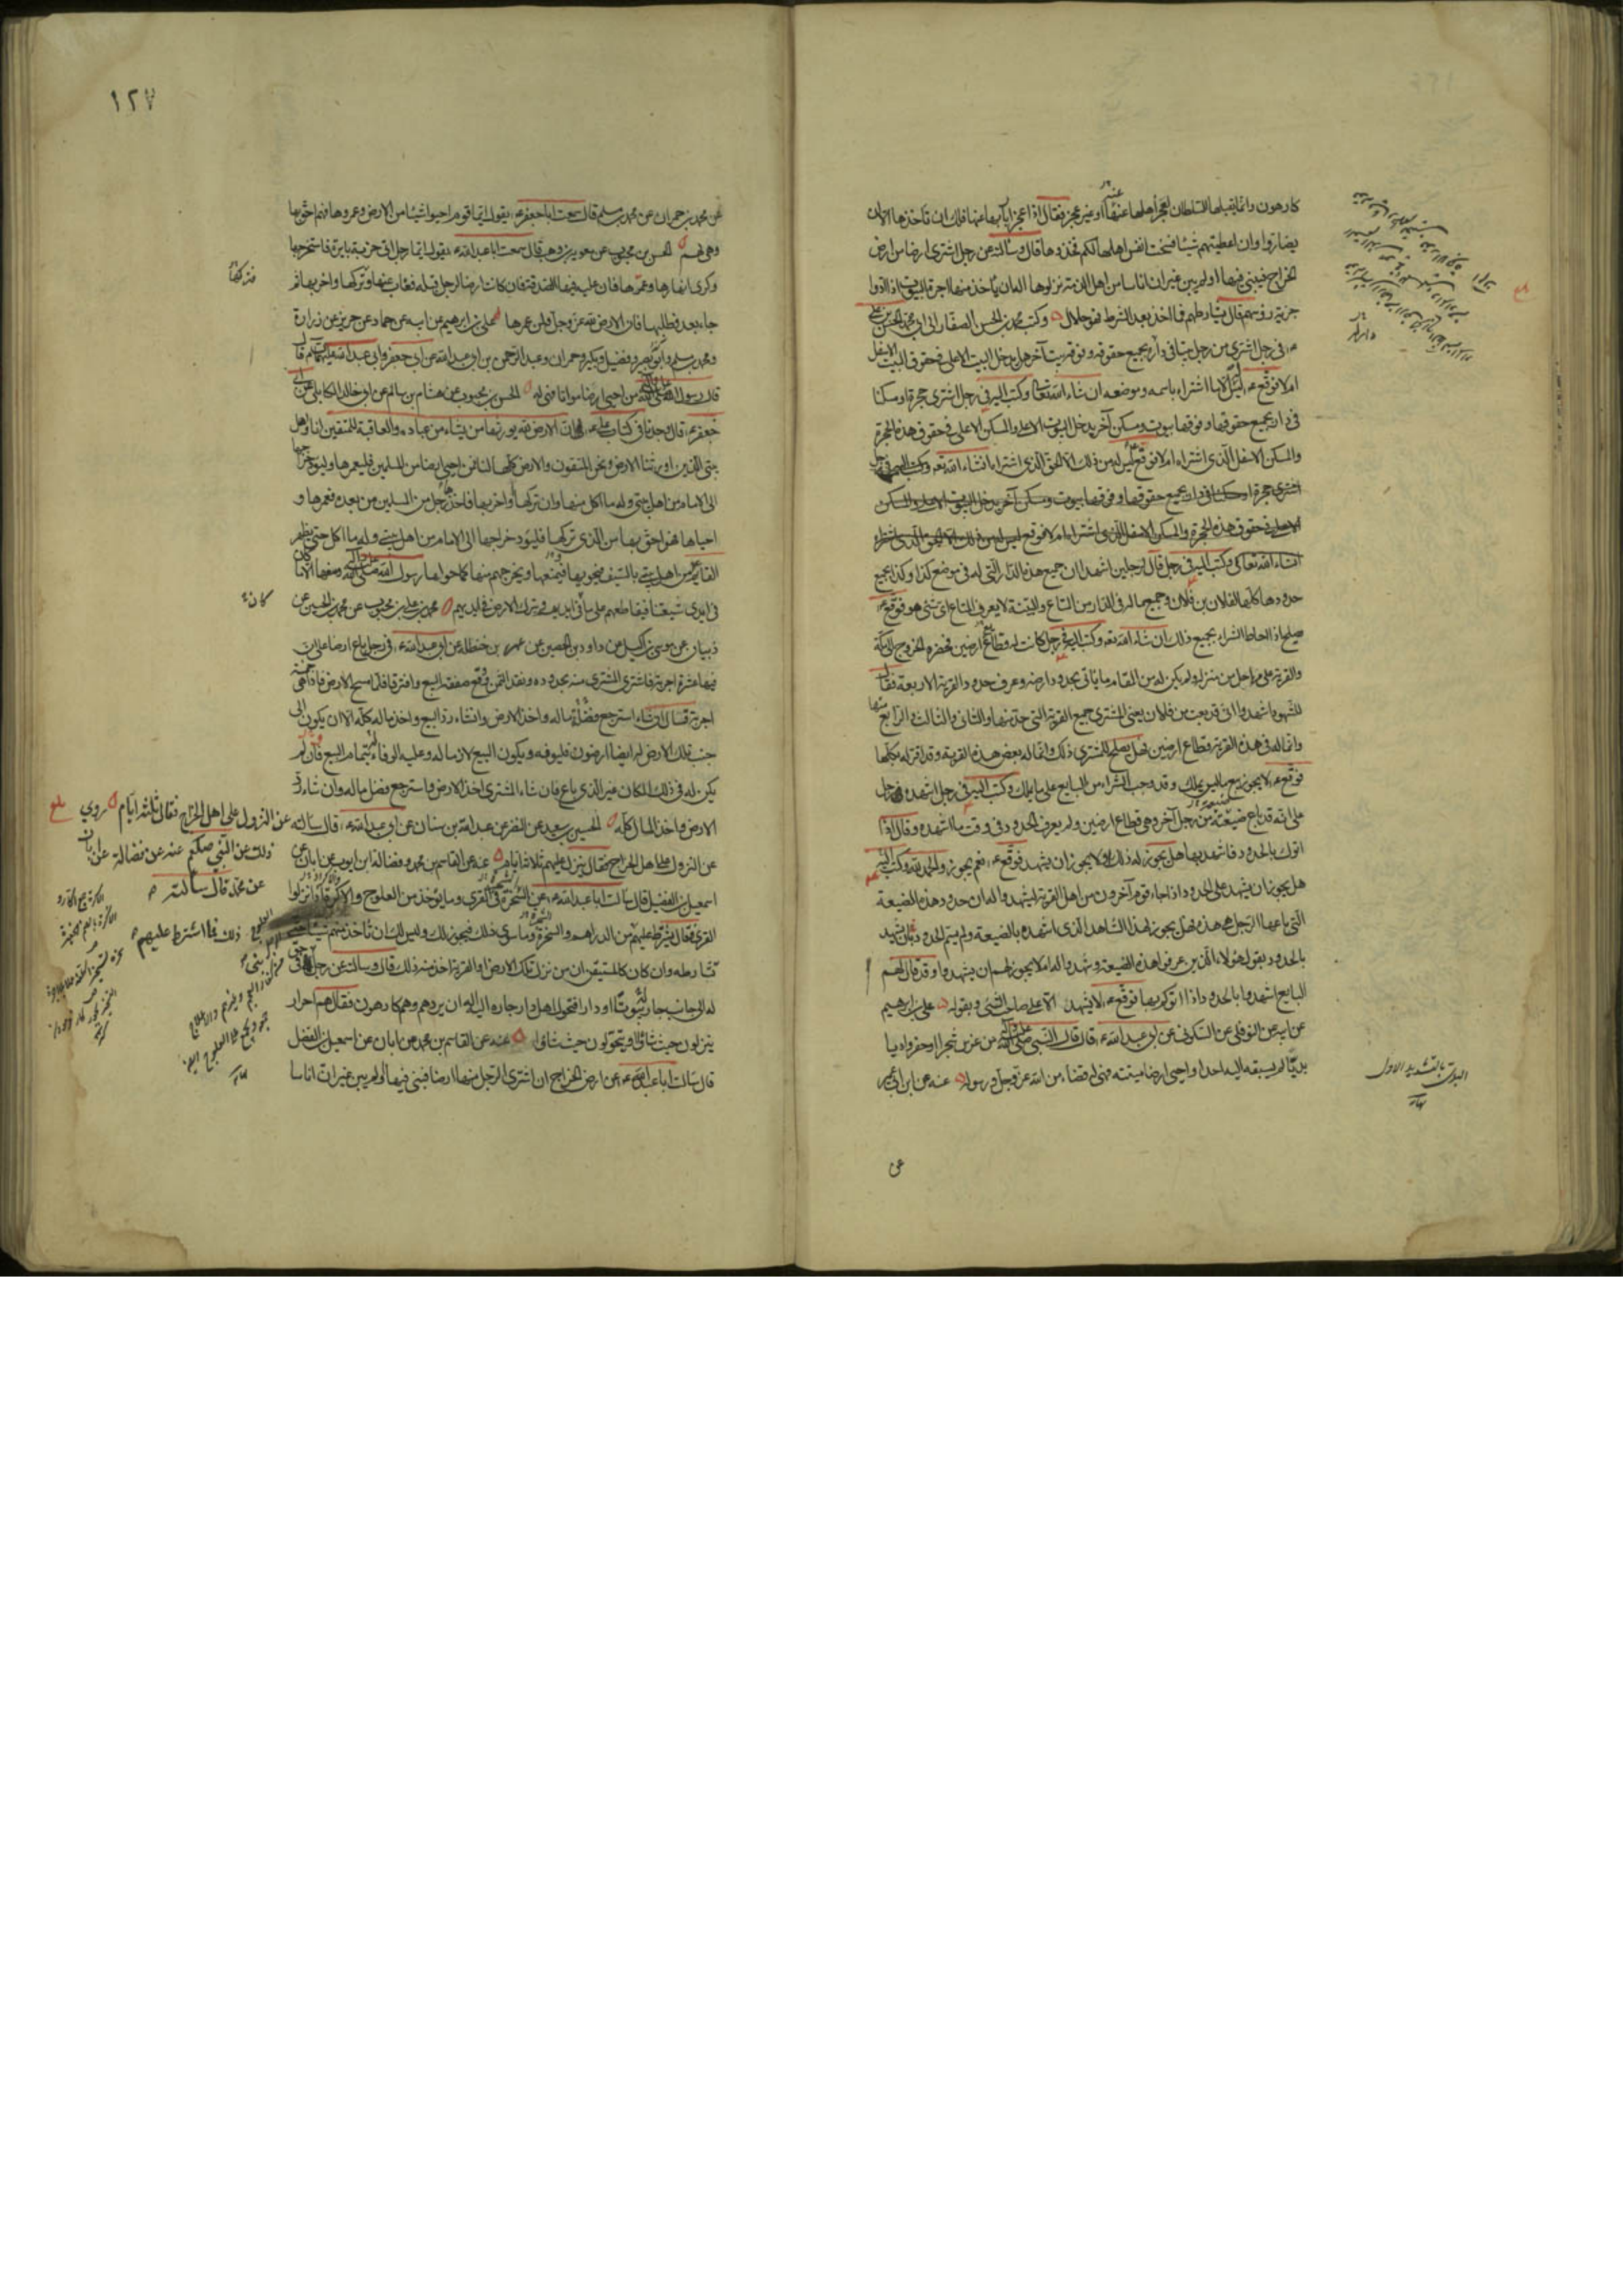 كارهون وانما يقبلها السلطان لعجز اهلها عنها او غير عجز فقال اذا عجز اربابها عنها فلك ان تأخذها الا ان
يضاروا وان اعطيتهم شيئا فسخت انفس اهلها لكم فخذوها قال وسالته عن رجل اشترى ارضا من ارض
الخراج فبنى فيها او لم يبن غير ان اناسا من اهل الذمة نزلوها اله ان ياخذ منها اجرة البيوت اذا ادوا
جزية رؤسهم قال يشارطهم فما اخذ بعد الشرط فهو حلال وكتب محمد بن الحسن الصفار الى ابي محمد الحسن بن علي
ع في رجل اشترى من رجل بيتا في دار بجميع حقوقه وفوقه بيت آخر هل يدخل البيت الاعلى في حقوق البيت الاسفل
ام لا فوقع ع ليس له الا ما اشتراه باسمه وموضعه ان شاء الله تعالى وكتب اليه في رجل اشترى حجرة او مسكنا
في دار بجميع حقوقها وفوقها بيوت ومسكن آخر يدخل البيوت الاعلى والمسكن الاعلى في حقوق هذه الحجرة
والمسكن الاسفل الذي اشتراه ام لا فوقع ع ليس له من ذلك الا الحق الذي اشتراه ان شاء الله تعه وكتب اليه في رجل
اشترى حجرة او مسكنا في دار بجميع حقوقها وفوقها بيوت ومسكن آخر يدخل البيوت الاعلى والمسكن
الاعلى في حقوق هذه الحجرة والمسكن الاسفل الذي اشتراه ام لا فوقع ليس له من ذلك الا الحق الذي اشتراه
انشاء الله تعالى وكتب اليه في رجل قال لرجلين اشهدا ان جميع هذه الدار التي له في موضع كذا وكذا بجميع
حدودها كلها لفلان بن فلان وجميع ماله في الدار من المتاع والبينة لا يعرف المتاع اي شئ هو فوقع ع
يصلح اذا احاط الشراء بجميع ذلك ان شاء الله تعه وكتب اليه في رجل كانت له قطاع ارضين فحضره الخروج الى مكة
والقرية على مراحل من منزله ولم يكن له من المقام ما ياتي بحدود ارضه وعرف حدود القرية الاربعة فقال
للشهود اشهدوا اني قد بعت من فلان يعني المشتري جميع القرية التي حد منها والثاني والثالث والرابع منها
وانما له في هذه القرية قطاع ارضين فهل يصلح للمشتري ذلك وانما له بعض هذه القرية وقد اقر له بكلها
فوقع ع لا يجوز بيع ما ليس يملك وقد وجب الشراء من البايع على ما يملك وكتب اليه في رجل اشهده رجل
على انه قد باع ضيعة من رجل آخر وهي قطاع ارضين ولم يعرف الحدود في وقت ما اشهده وقال اذا
اتوك بالحدود فاشهد بها هل يجوز له ذلك او لا يجوز ان يشهد فوقع ع نعم يجوز والحمد لله وكتب اليه
هل يجوز ان يشهد على الحدود اذا جاء قوم آخرون من اهل القرية ليشهدوا له ان حدود هذه الضيعة
التي باعها الرجل هي هذه فهل يجوز لهذا الشاهد الذي اشهده بالضيعة ولم يسم الحدود ان يشهد
بالحدود بقول هؤلاء الذين عرفوا هذه الضيعة وشهدوا له ام لا يجوز لهم ان يشهدوا وقد قال لهم
البايع اشهدوا بالحدود اذا اتوكم بها فوقع ع لا يشهد الا على صاحب الشئ وبقوله علي بن ابرهيم
عن ابيه عن النوفلي عن السكوني عن ابي عبد الله ع قال قال النبي صلى الله عليه وآله من غرس شجرا او حفر واديا
بديا لم يسبقه اليه احد او احيى ارضا ميتة فهي له قضاء من الله عز وجل ورسوله عنه عن ابن ابي عمير
البدي بالتشديد الاول
عن
١٢٧
عن محمد بن حمران عن محمد بن مسلم قال سمعت ابا جعفر ع يقول ايما قوم احيوا شيئا من الارض وعمروها فهم احق بها
وهي لهم الحسن بن محبوب عن معوية بن وهب قال سمعت ابا عبد الله ع يقول ايما رجل اتى خربة بايرة فاستخرجها
وكرى انهارها وعمرها فان عليه فيها الصدقة فان كانت ارضا لرجل قبله فغاب عنها وتركها واخربها ثم
جاء بعد فطلبها فان الارض لله عز وجل ولمن عمرها علي بن ابرهيم عن ابيه عن حماد عن حريز عن زرارة
ومحمد بن مسلم وابي بصير وفضيل وبكير وحمران وعبد الرحمن بن ابي عبد الله عن ابي جعفر وابي عبد الله عليهما السلام قالا
قال رسول الله صلى الله عليه وآله من احيى ارضا مواتا فهي له الحسن بن محبوب عن هشام بن سالم عن ابي خالد الكابلي عن ابي
جعفر ع قال وجدنا في كتاب علي ع ان الارض لله يورثها من يشاء من عباده والعاقبة للمتقين انا واهل
بيتي الذين اورثنا الارض ونحن المتقون والارض كلها لنا فمن احيى ارضا من المسلمين فليعمرها وليؤد خراجها
الى الامام من اهل بيتي وله ما اكل منها وان تركها او اخربها فاخذها رجل من المسلمين من بعده فعمرها و
احياها فهو احق بها من الذي تركها فليؤد خراجها الى الامام من اهل بيتي وله ما اكل حتى يظهر
القايم من اهل بيتي بالسيف فيحويها فيمنعها ويخرجهم منها كما حواها رسول الله صلى الله عليه وآله ومنعها الا ما كان
في ايدي شيعتنا فيقاطعهم على ما في ايديهم ويترك الارض في ايديهم محمد بن علي بن محبوب عن محمد بن الحسين عن
ذبيان عن موسى بن اكيل عن داود بن الحصين عن عمر بن حنظلة عن ابي عبد الله ع في رجل باع ارضا على ان
فيها عشرة اجربة فاشترى المشتري منه بحدوده ونقد الثمن ووقع صفقة البيع وافترقا فلما مسح الارض فاذا هي خمسة
اجربة قال ان شاء استرجع فضل ماله واخذ الارض وان شاء رد البيع واخذ ماله كله الا ان يكون الى
جنب تلك الارض له ايضا ارضون فليوفه ويكون البيع لازما له وعليه الوفاء بتمام البيع فان لم
يكن له في ذلك المكان غير الذي باع فان شاء المشتري اخذ الارض واسترجع فضل ماله وان شاء رد
الارض واخذ المال كله الحسين بن سعيد عن النضر عن عبد الله بن سنان عن ابي عبد الله ع قال سالته عن النزول على اهل الخراج فقال ثلثة ايام روي
ذلك عن النبي صلعم عنه عن فضالة عن ابان
عن محمد قال سألته
عن النزول على اهل الخراج فقال ينزل عليهم ثلاثة ايام عنه عن القاسم بن محمد وفضالة بن ايوب عن ابان عن
اسمعيل بن الفضيل قال سالت ابا عبد الله ع عن السخرة في القرى وما يؤخذ من العلوج والاكرة اذا نزلوا
القرى فقال يشترط عليهم من الدراهم والسخرة وما سوى ذلك فيجوز لك وليس لك ان تأخذ منهم شيئا حتى
تشارطه وان كان كالمستيقن ان من نزل تلك الارض او القرية اخذ منه ذلك قال وسالته عن رجل بنى في حق
له الى جانب جار بيوتا او دارا فتحول اهل دار جاره اليه اله ان يردهم وهم كارهون فقال هم احرار
ينزلون حيث شاؤا ويتحولون حيث شاؤا عنه عن القاسم بن محمد عن ابان عن اسمعيل بن الفضل
قال سالت ابا عبد الله ع عن ارض الخراج ان اشترى الرجل منها ارضا فبنى فيها او لم يبن غير ان اناسا